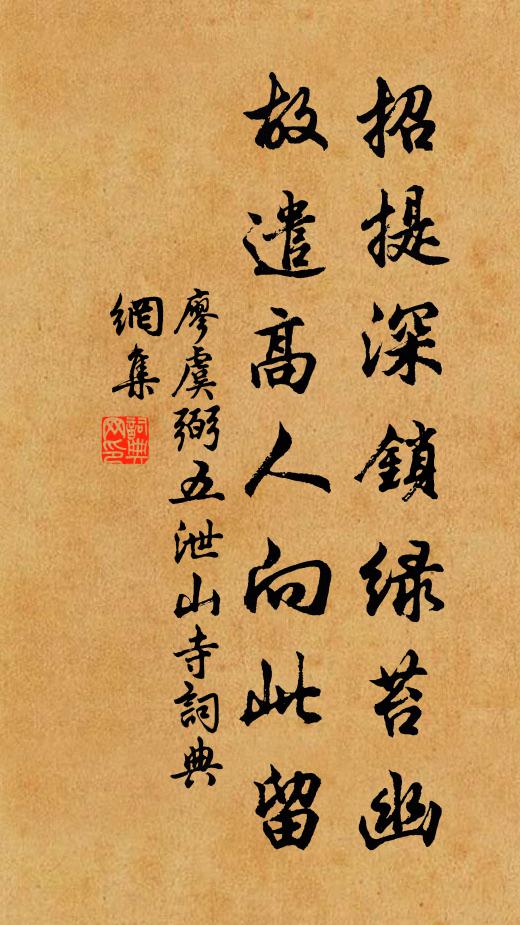 招提深鎖緑苔幽
故遣高人向此留
廖虞弼五泄山寺詞典
網集
詞典
网印